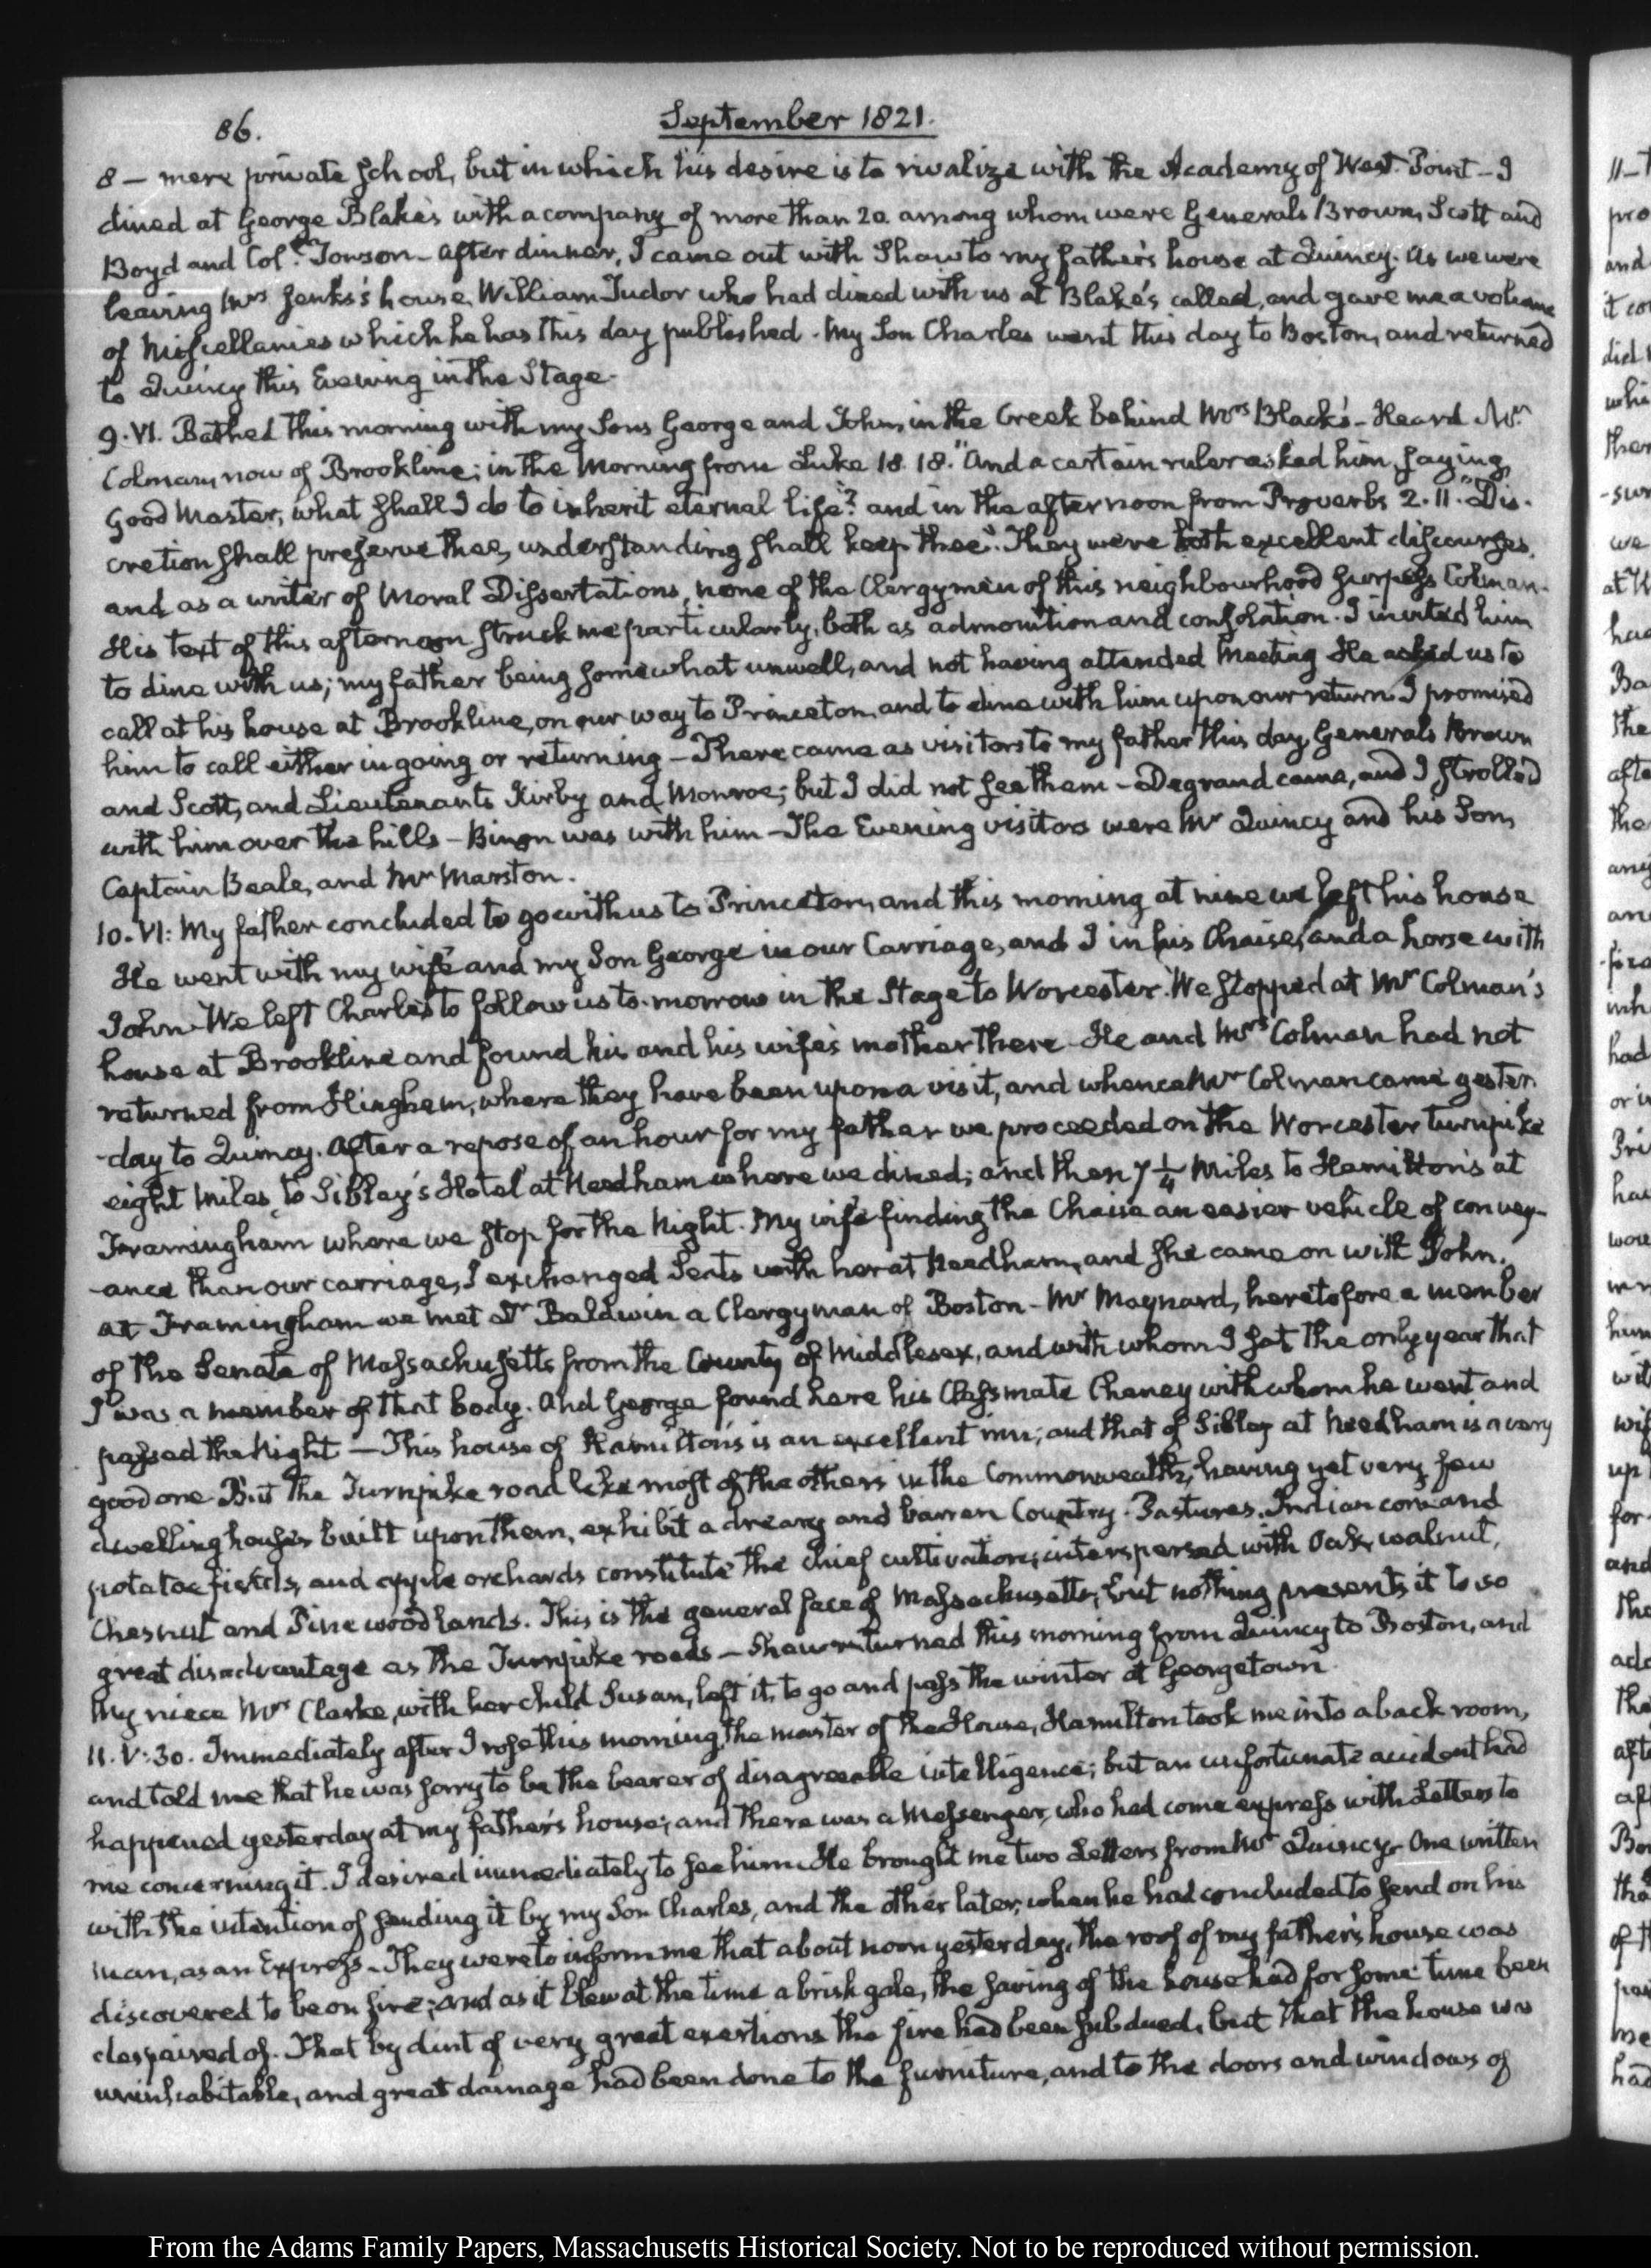 86.
September 1821.
8 — mere private school, but in which his desire is to rivalize with the Academy of West-Point — I
dined at George Blake's with a company of more than 20 among whom were Generals Brown, Scott and
Boyd and Coll. Towson — After dinner, I came out with Shaw to my father's house at Quincy. As we were
leaving Mrs Jenks's house, William Tudor who had dined with us at Blake's called, and gave me a volume
of Miscellanies which he has this day published. My Son Charles went this day to Boston, and returned
to Quincy this Evening in the Stage.
9. VI. Bathed this morning with my Sons George and John, in the Creek behind Mrs Black's — Heard Mr.
Colman, now of Brookline; in the Morning from Luke 18. 18. "And a certain ruler asked him, saying,
Good Master, what shall I do to inherit eternal life"? and in the afternoon from Proverbs 2. 11. "Dis-
cretion shall preserve thee, understanding shall keep thee". They were both excellent discourses,
and as a writer of Moral Dissertations, none of the Clergymen of this neighbourhood surpass Colman.
His text of this afternoon struck me particularly, both as admonition and consolation. I invited him
to dine with us; my father being somewhat unwell, and not having attended Meeting He asked us to
call at his house at Brookline, on our way to Princeton, and to dine with him upon our return. I promised
him to call either in going or returning — There came as visitors to my father this day Generals Brown
and Scott, and Lieutenants Kirby and Monroe; but I did not see them — Degrand came, and I strolled
with him over the hills — Binon was with him — The Evening visitors were Mr Quincy and his Son,
Captain Beale, and Mr Marston.
10. VI: My father concluded to go with us to Princeton, and this morning at nine we left his house
He went with my wife and my Son George in our Carriage, and I in his Chaise, and a horse with
John. We left Charles to follow us to-morrow in the Stage to Worcester. We stopped at Mr Colman's
house at Brookline and found his and his wife's mother there — He and Mrs Colman had not
returned from Hingham, where they have been upon a visit, and whence Mr Colman came yester-
-day to Quincy. After a repose of an hour for my father we proceeded on the Worcester turnpike
eight miles, to Sibley's Hotel at Needham where we dined; and then 7 1/4 Miles to Hamilton's at
Framingham where we stop for the Night. My wife finding the Chaise an easier vehicle of convey-
-ance than our carriage, I exchanged Seats with her at Needham, and she came on with John.
At Framingham we met Dr Baldwin a Clergyman of Boston — Mr Maynard, heretofore a member
of the Senate of Massachusetts from the County of Middlesex, and with whom I sat the only year that
I was a member of that body. And George found here his Classmate Cheney with whom he went and
passed the Night — This house of Hamilton's is an excellent inn; and that of Sibley at Needham is a very
good one. But the Turnpike road like most of the others in the Commonwealth, having yet very few
dwelling houses built upon them, exhibit a dreary and barren Country. Pastures, Indian corn and
potatoe fields, and apple orchards constitute the chief cultivation; interspersed with Oak, walnut,
Chesnut and Pine wood lands. This is the general face of Massachusetts; but nothing presents it to so
great disadvantage as the Turnpike roads — Shaw returned this morning from Quincy to Boston, and
my niece Mrs Clarke, with her child Susan, left it, to go and pass the winter at Georgetown.
11. V:30. Immediately after I rose this morning, the master of the House, Hamilton took me into a back room,
and told me that he was sorry to be the bearer of disagreeable intelligence; but an unfortunate accident had
happened yesterday at my father's house; and there was a Messenger, who had come express with Letters to
me concerning it. I desired immediately to see him. He brought me two Letters from Mr Quincy — One written
with the intention of sending it by my Son Charles, and the other later, when he had concluded to send on his
man, as an Express. They were to inform me that about noon yesterday, the roof of my father's house was
discovered to be on fire; and as it blew at the time a brisk gale, the saving of the house had for some time been
despaired of. That by dint of very great exertions the fire had been subdued, but that the house was
uninhabitable, and great damage had been done to the furniture, and to the doors and windows of
From the Adams Family Papers, Massachusetts Historical Society. Not to be reproduced without permission.